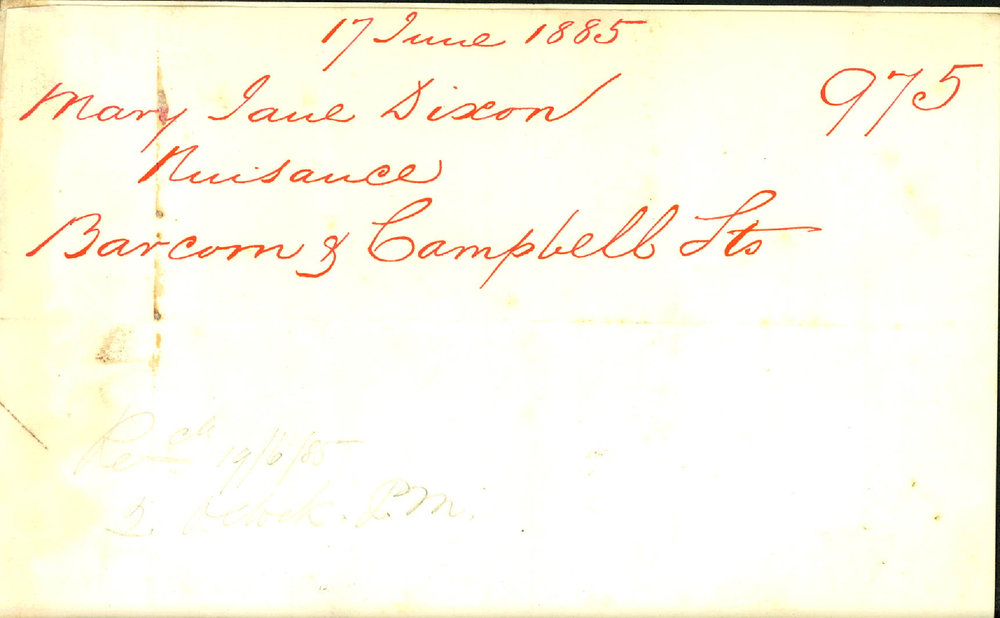 17 June 1885
975
Mary Jane Dixon
Nuisance
Barcom & Campbell Sts
19/6/85
oclock. P.M.